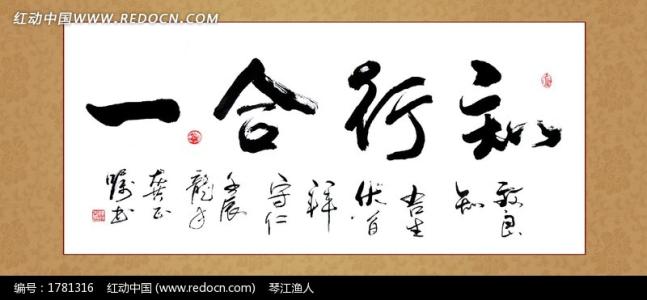 红动中国 WWW.REDOCN.COM
知行合一
致良
知
吉生
伏首
祥
守仁
壬辰
龍年
龚正
嘱书
编号：1781316 红动中国 (www.redocn.com) 琴江渔人